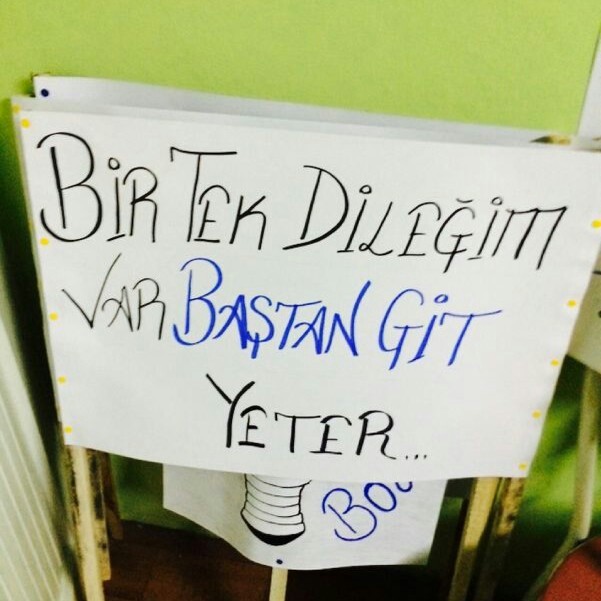 BİR TEK DİLEĞİM
VAR BAŞTAN GİT
YETER...